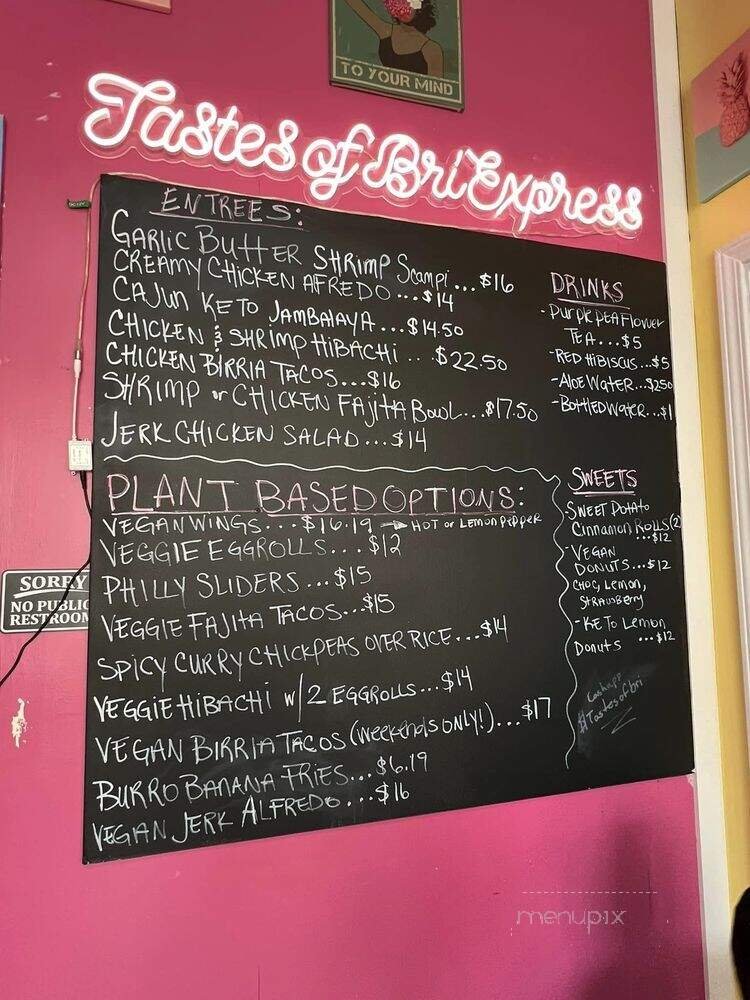 TO YOUR MIND
Tastes of Bri Express
ENTREES:
GARLIC BUTTER SHRIMP Scampi...$16
CREAMY CHICKEN AFREDO...$14
CAJUN KETO JAMBALAYA...$14.50
CHICKEN & SHRIMP HIBACHI...$22.50
CHICKEN BIRRIA TACOS...$16
SHRIMP or CHICKEN FAJITA BOWL...$17.50
JERK CHICKEN SALAD...$14
DRINKS
-Purple PEA Flower
TEA...$5
-RED HIBISCUS...$5
-Aloe Water...$250
-Bottled Water...$1
PLANT BASED OPTIONS:
VEGAN WINGS...$16.19 → HOT or LEMON PEPPER
VEGGIE EGGROLLS...$12
PHILLY SLIDERS...$15
VEGGIE FAJITA TACOS...$15
SPICY CURRY CHICKPEAS OVER RICE...$14
VEGGIE HIBACHI W/ 2 EGGROLLS...$14
VEGAN BIRRIA TACOS (Weekends ONLY!)...$17
BURRO BANANA FRIES...$6.19
VEGAN JERK ALFREDO...$16
SWEETS
-SWEET POTATO
Cinnamon ROLLS(2)
...$12
-VEGAN
DONUTS...$12
CHOC, Lemon,
STRAWBERRY
-KETO Lemon
Donuts ...$12
Cashapp
$Tastesofbri
SORRY
NO PUBLIC
RESTROOM
menupix